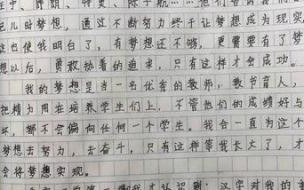 儿时梦想,通过不断努力终于让梦想成为现实
这也使我明白了,有梦想还不够,更需要有了梦
想以后,勇敢执着的追求,只有这样才会成功。
我的梦想是当一名优秀的教师,教书育人,
把精力用在培养学生们上,不管他们的成绩好与
坏,都不会偏向任何一个学生。我会一直为这个
梦想去努力,去奋斗,只有这种等我长大了,才
会将梦想实现。